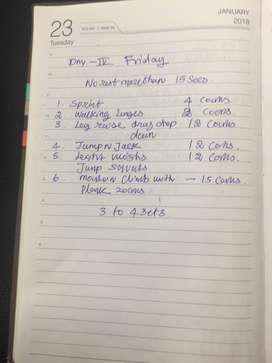 JANUARY
2018
23
Tuesday
Day - IV Friday
No rest more than 15 secs
1 Sprint 4 counts
2 walking lunges 2 counts
3 Leg raise drag stop 12 counts
down
4. Jump n Jack 12 counts.
5. weights 12 counts.
Jump squats
6. mountain climb with - 15 counts.
Plank
3 to 4 sets